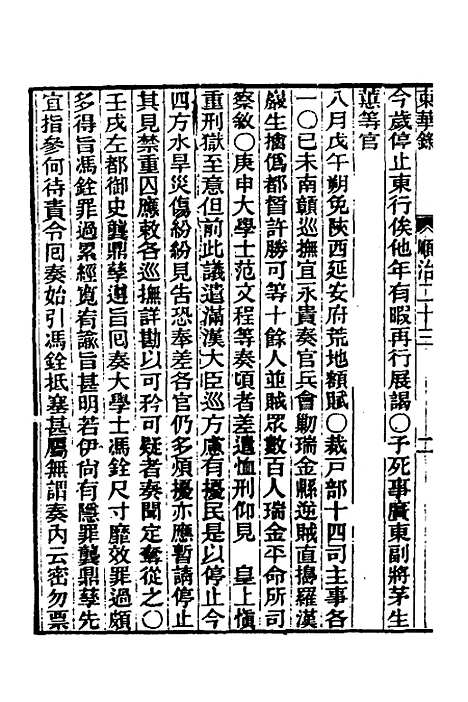 東華錄 順治二十三 二
今歲停止東行俟他年有暇再行展謁〇予死事廣東副將茅生
蕙等官
八月戊午朔免陝西延安府荒地額賦〇裁戸部十四司主事各
一〇己未南贛巡撫宜永貴奏官兵會勦瑞金縣逆賊直搗羅漢
巖生擒僞都督許勝可等十餘人並賊眾數百人瑞金平命所司
察敘〇庚申大學士范文程等奏頃者差遣恤刑仰見 皇上愼
重刑獄至意但前此議遣滿漢大臣巡方慮有擾民是以停止今
四方水旱災傷紛紛見吿恐奉差各官仍多煩擾亦應暫請停止
其見禁重囚應敕各巡撫詳勘以可矜可疑者奏聞定奪從之〇
壬戌左都御史龔鼎孳遵旨囘奏大學士馮銓尺寸靡效罪過頗
多得旨馮銓罪過累經寬宥諭旨甚明若伊尙有隱罪龔鼎孳先
宜指參何待責令囘奏始引馮銓抵塞甚屬無謂奏內云密勿票